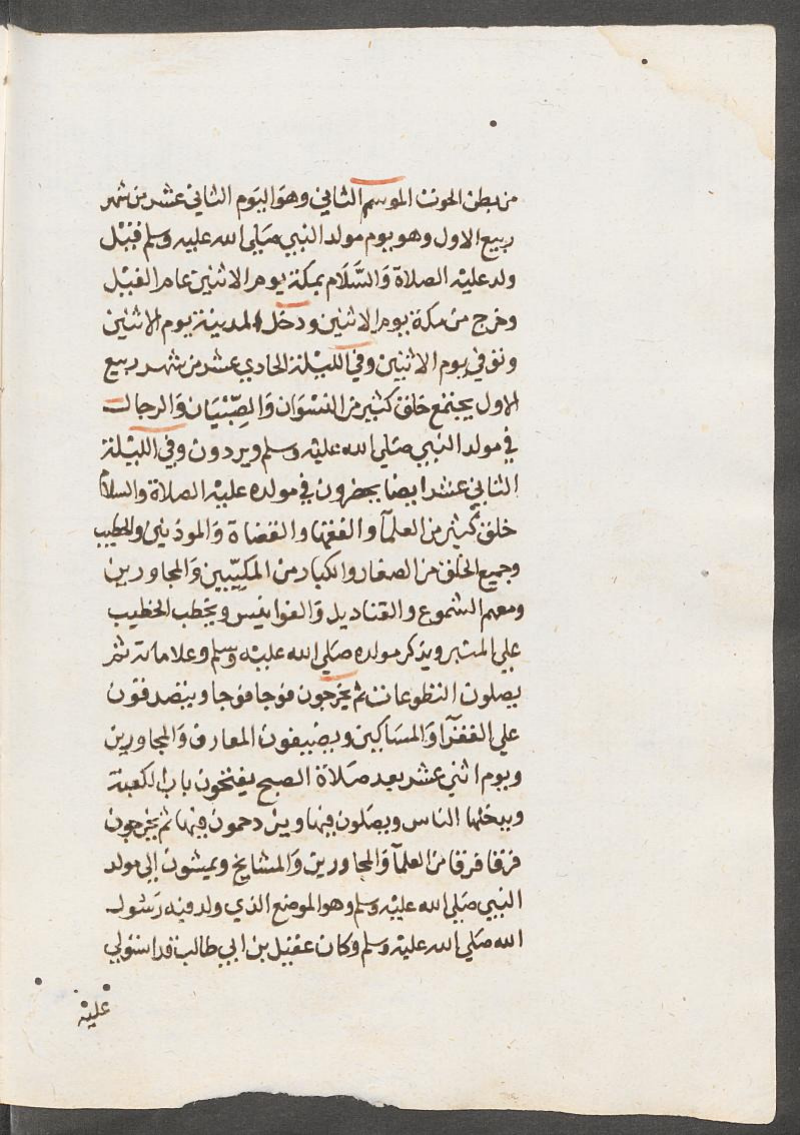 من بطن الحوت الموسم الثاني وهو اليوم الثاني عشر من شهر
ربيع الاول وهو يوم مولد النبي صَلي الله عليه وسلم قيل
ولد عليه الصلاة وَالسَّلَام بمكة يوم الاثنين عام الفيل
وخرج من مكة يوم الاثنين ودخل المدينة يوم الاثنين
وتوفي يوم الاثنين وفي الليلة الحادي عشر من شهر ربيع
الاول يجتمع خلق كثير من النسْوَان وَالصِّبْيَان وَالرجال
في مولد النبي صَلي الله عليه وسلم ويردون وفي الليلة
الثاني عشر ايضا يحضرون في مولده عليه الصلاة والسلام
خلق كثير من العلمآ والفقها والقضاة وَالموذنين والخطيب
وجميع الخلق من الصغار والكبار من المَكِيّيِين وَالمجاورين
ومعهم الشموع والقناديل وَالفوانيس ويخطب الخطيب
علي المنبر ويذكر مولده صَلي الله عليه وسلم وعلاماته ثم
يصلون التطوعات ثم يخرجون فوجا فوجا ويتصدقون
علي الفقرآ وَالمسَاكين ويضيفون المعارف وَالمجاورين
ويوم اثني عشر بعد صَلَاة الصبح يفتحون باب الكعبة
ويدخلها الناس ويصَلون فيها ويزدحمون فيها ثم يخرجون
فرقا فرقا من العلمآ وَالمجاورين وَالمشايخ ويمشون الي مولد
النبي صَلي الله عليه وسلم وهو الموضع الذي ولد فيه رَسُول
الله صَلي الله عليه وسلم وكان عقيل بن ابي طالب قد استولي
عليه